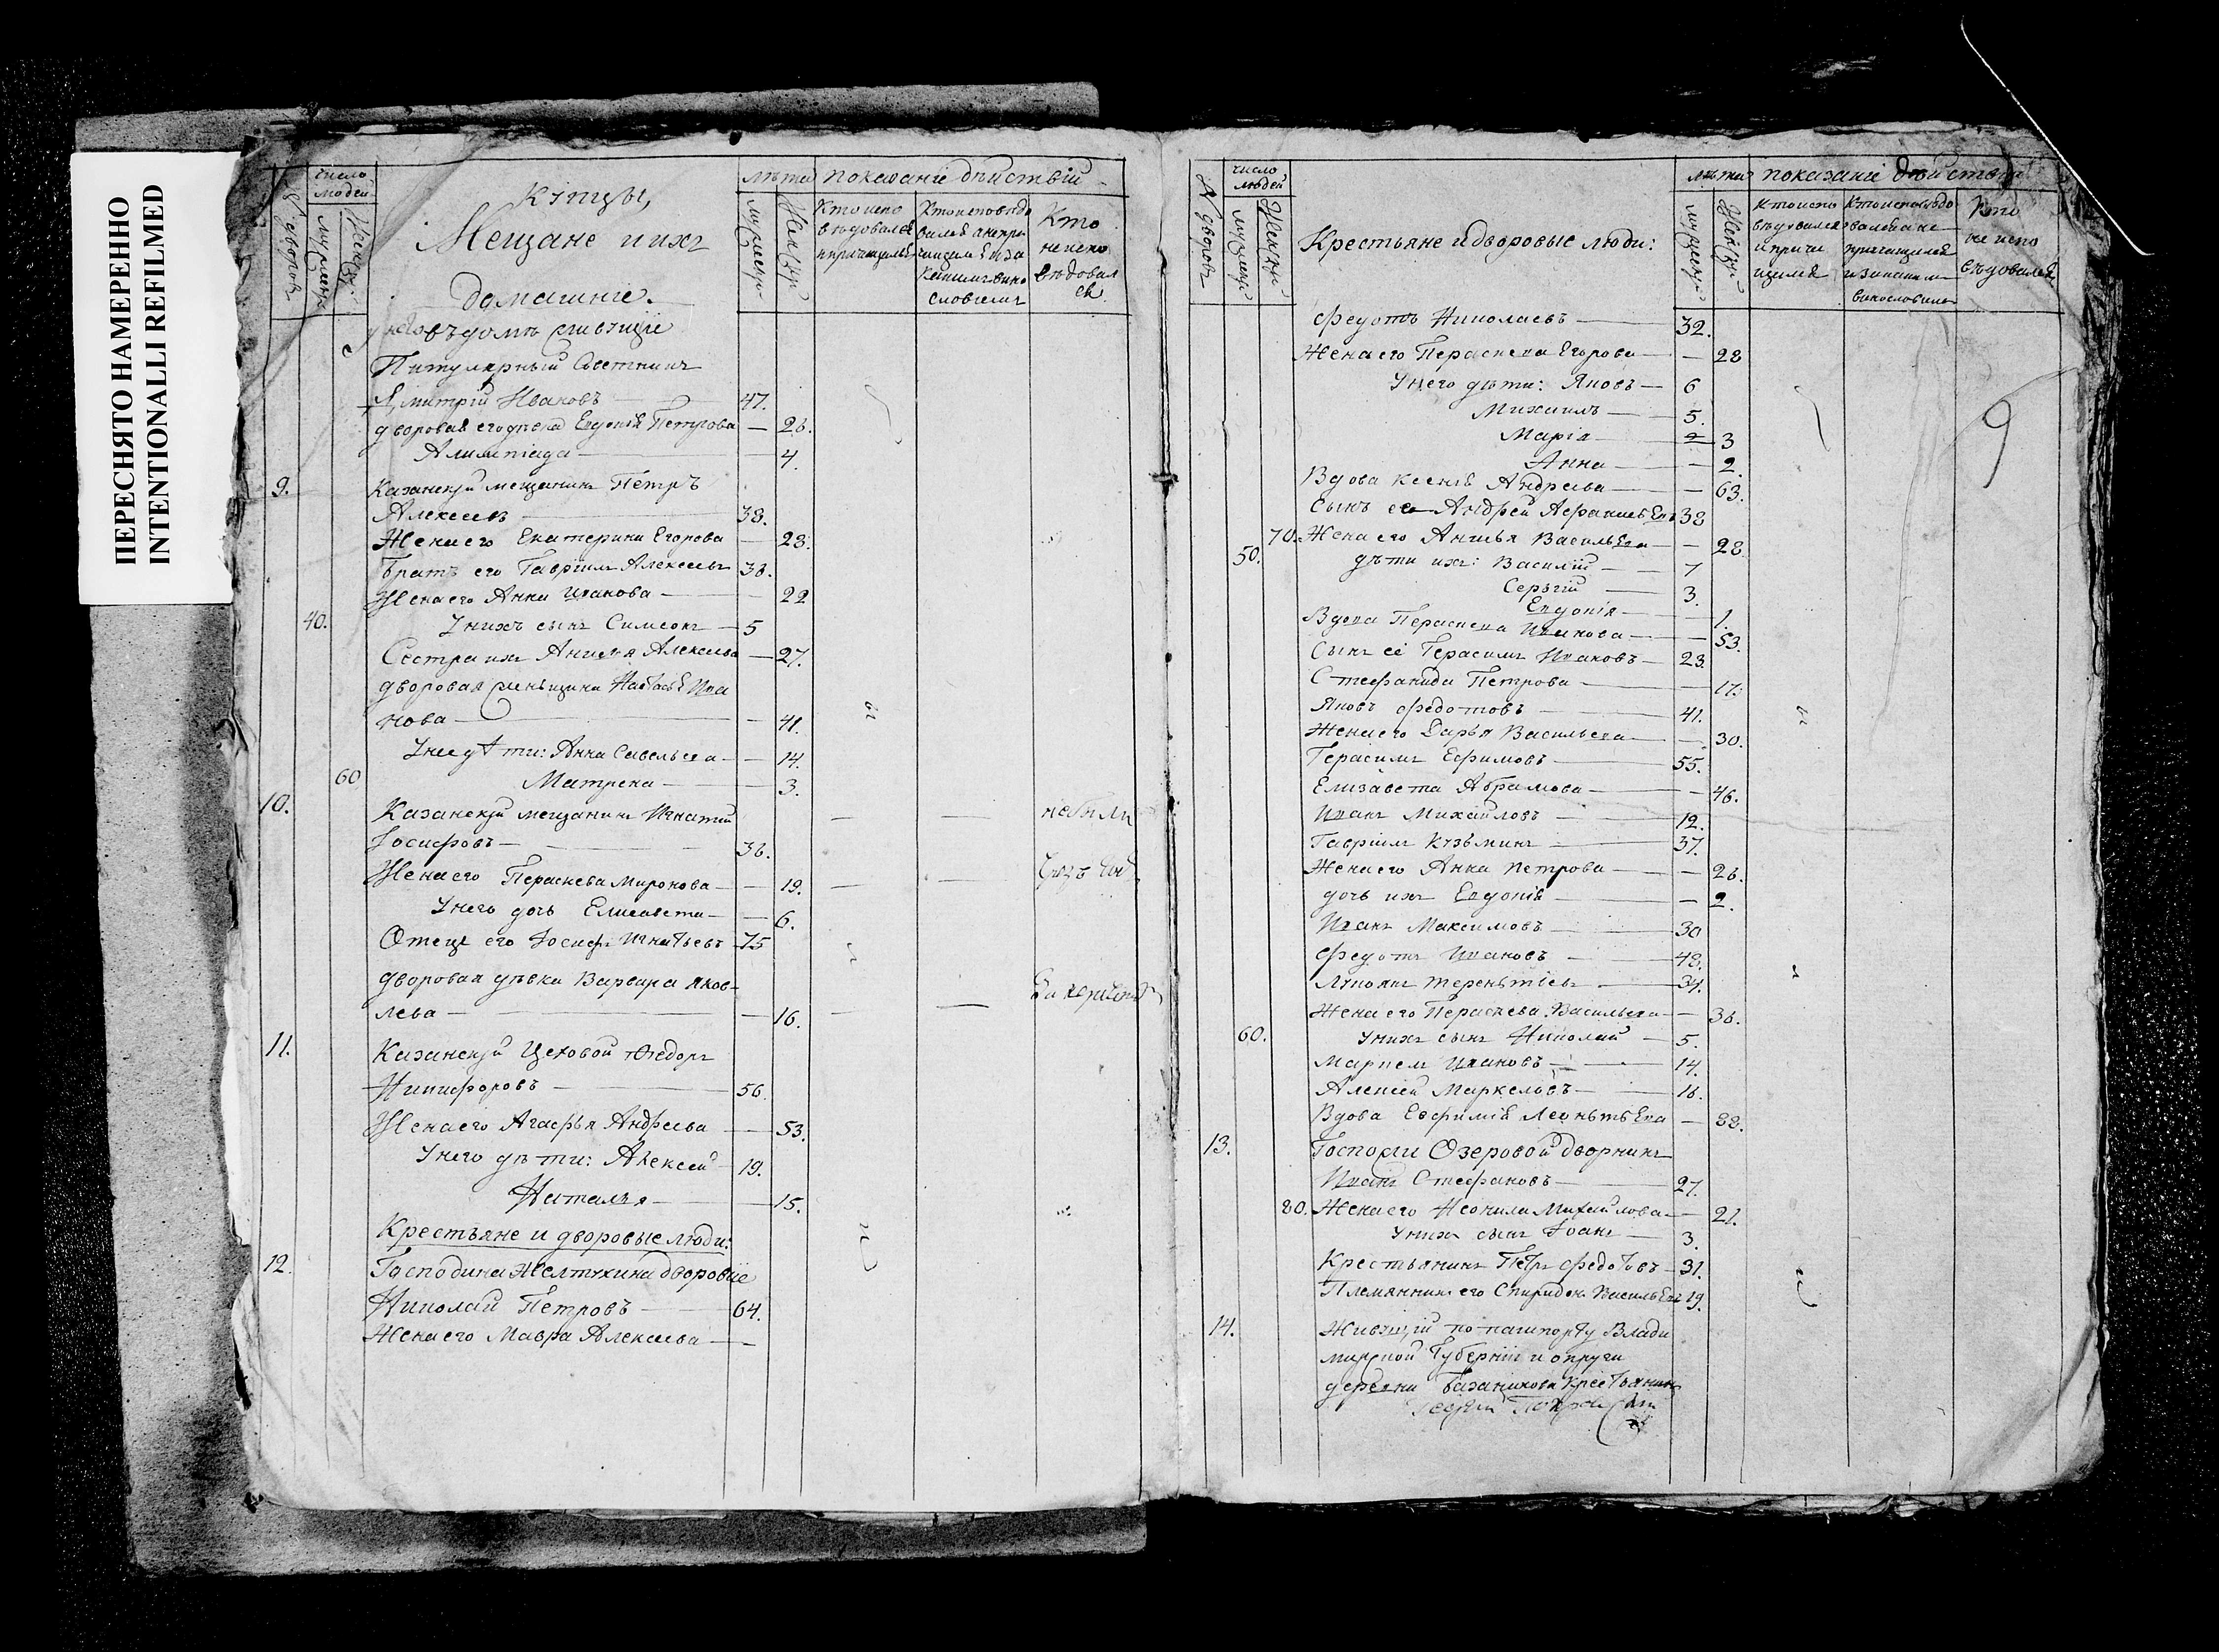 ПЕРЕСНЯТО НАМЕРЕННО
INTENTIONALLI REFILMED
число
людей
лѣта показаніе дѣйствій
№ дворовъ
Купцы,
Мещане и ихъ
домашніе.
Кто испо
вѣдовался
Кто
не испо
вѣдовал
ся
Титулярный Советникъ
Димитрій Ивановъ — 47.
дворовая его девка Евдокія Петрова — 26.
Алимпіада — 4.
9. Казанскуй мещанинъ Петръ
Алексеевъ — 38.
Жена его Екатерина Егорова — 28.
братъ его Гавріилъ Алексеевъ 36.
Жена его Анна Иванова — 22
40. У нихъ сынъ Симеонъ — 5
Сестра ихъ Анисья Алексеева — 27.
дворовая женьщина Настасья Ива
нова — 41.
У нее дѣти: Анна Савельева — 14.
60 Матрена — 3.
10. Казанскуй мещанинъ Игнатий — — небыли
Іосифовъ — 36.
Жена его Пераскева Миронова — 19. — —
У него дочь Елисавета — 6.
Отецъ его Іосифъ Игнатьевъ 75
дворовая дѣвка Варвара Яков-
лева — 16. — —
11. Казанскуй Цеховой Феодоръ
Никифоровъ — 56.
Жена его Агафья Андреева — 53.
У него дѣти: Алексей 19.
Наталья — 15.
Крестьяне и дворовые люди:
12. Господина Желтухина дворовые
Николай Петровъ — 64.
Жена его Мавра Алексеева —
число
людей
лѣта показаніе дѣйствія
№ дворовъ
Крестьяне и дворовые люди:
Кто испо
вѣдовался
и прича
щался
Кто
не испо
вѣдовался
9
Федотъ Николаевъ — 32.
Жена его Пераскева Егорова — 28
У него дѣти: Яковъ — 6
Михаилъ — 5.
Марія — 3
Анна — 2.
Вдова Ксенія Андреева — 63.
Сынъ ее Андрей Афанасьевъ 38
70. Жена его Анисья Васильева — 28
50. дѣти ихъ: Василій — 7
Сергій — 3.
Евдокія — 1.
Вдова Пераскева Иванова — 53.
Сынъ ее Герасимъ Ивановъ — 23.
Стефанида Петрова — 17.
Яковъ Федотовъ — 41.
Жена его Дарья Васильева — 30.
Герасимъ Ефимовъ — 55.
Елизавета Абрамова — 46.
Иванъ Михайловъ — 12.
Гавріилъ Кузьминъ — 37.
Жена его Анна Петрова — 26.
дочь ихъ Евдокія — 2.
Иванъ Максимовъ — 30
Федотъ Ивановъ — 48.
Лукіянъ Тереньтіевъ — 34.
Жена его Пераскева Васильева — 36.
60. У нихъ сынъ Николай — 5.
Маркел Ивановъ — 14.
Алексей Маркеловъ — 16.
Вдова Евфимія Леоньтьева — 82.
13. Госпожи Озеровой дворникъ
Иванъ Стефановъ — 27.
80. Жена его Неонила Михайлова — 21.
У нихъ сынъ Іоанъ — 3.
Крестьянинъ Петръ Федотовъ — 31.
Племянникъ его Спиридонъ Васильевъ 19.
14. Живущій по пашпорту Влади
мирской Губерніи и округи
деревни крестьянинъ